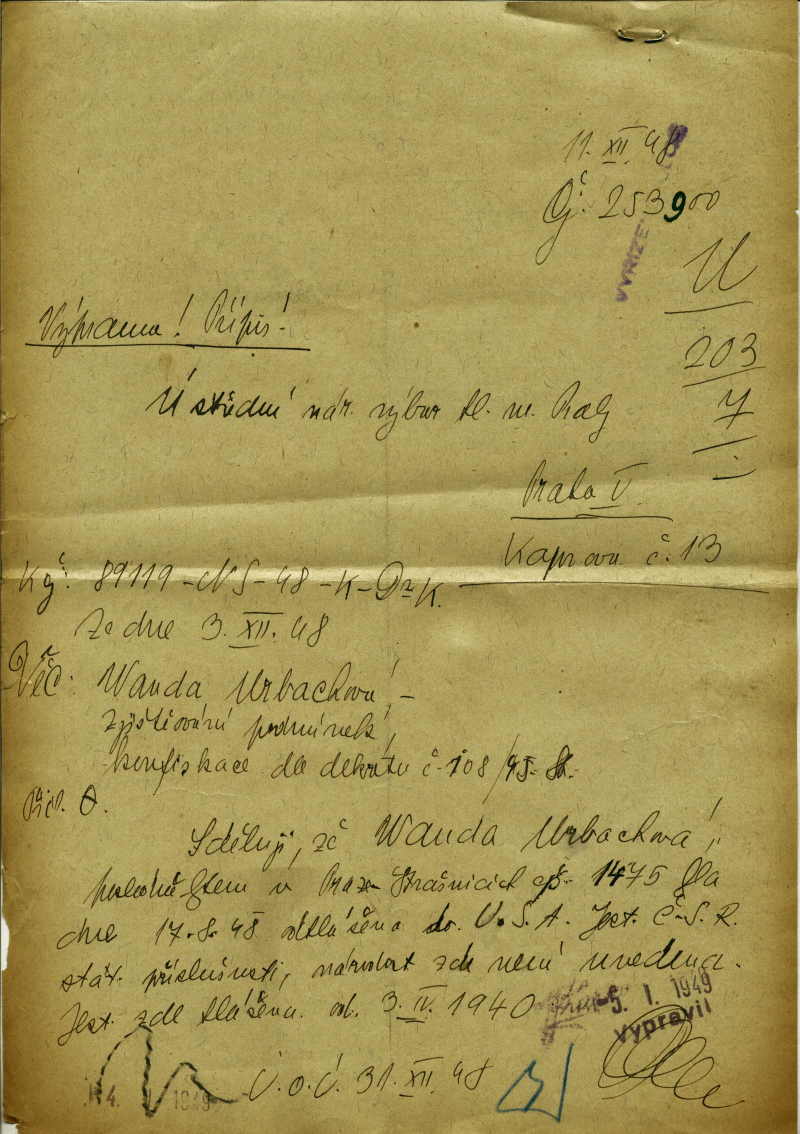 11. XII. 48
Čj: 253900
VYŘÍZE
U
Výprava! Přípis!
203
7
Ústřední nár. výbor hl. m. Prahy
Praha V
Kaprova č. 13
Kčj: 89119-NS-48-K-Dr.K.
Ze dne 3. XII. 48
Věc: Wanda Urbachová,-
zjišťování podmínek
konfiskace dle dekretu č. 108/45. Sb.
Příl. 0.
Sděluji, že Wanda Urbachová,
posledně bytem v Praze Strašnicích čp. 1475 byla
dne 17.8.48 odhlášena do U.S.A. Jest Č.S.R.
stát. příslušnosti, národnost zde není uvedena.
Jest zde hlášena od 3. IV. 1940
-5. I. 1949
vypravil
4. 1949
Ú.o.Ú. 31. XII. 48